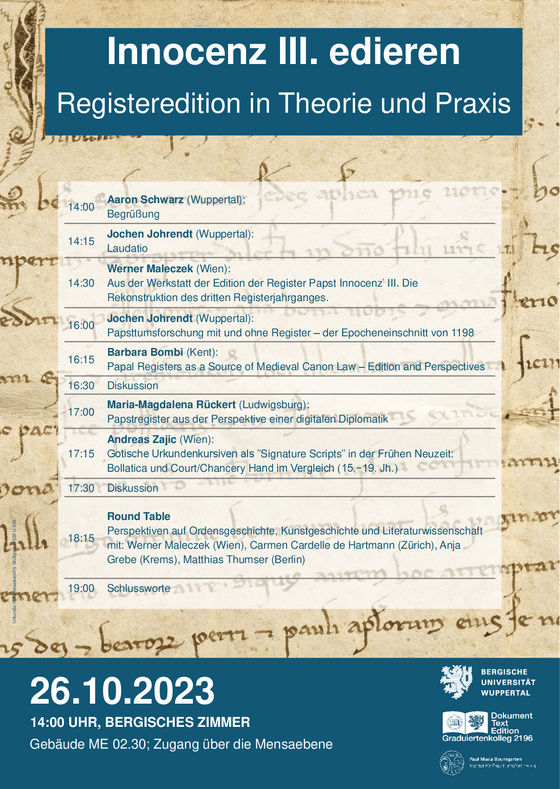 Innocenz III. edieren
Registeredition in Theorie und Praxis
14:00
Aaron Schwarz (Wuppertal):
Begrüßung
14:15
Jochen Johrendt (Wuppertal):
Laudatio
14:30
Werner Maleczek (Wien):
Aus der Werkstatt der Edition der Register Papst Innocenz' III. Die
Rekonstruktion des dritten Registerjahrganges.
16:00
Jochen Johrendt (Wuppertal):
Papsttumsforschung mit und ohne Register – der Epocheneinschnitt von 1198
16:15
Barbara Bombi (Kent):
Papal Registers as a Source of Medieval Canon Law – Edition and Perspectives
16:30 Diskussion
17:00
Maria-Magdalena Rückert (Ludwigsburg):
Papstregister aus der Perspektive einer digitalen Diplomatik
17:15
Andreas Zajic (Wien):
Gotische Urkundenkursiven als "Signature Scripts" in der Frühen Neuzeit:
Bollatica und Court/Chancery Hand im Vergleich (15.–19. Jh.)
17:30 Diskussion
18:15
Round Table
Perspektiven auf Ordensgeschichte, Kunstgeschichte und Literaturwissenschaft
mit: Werner Maleczek (Wien), Carmen Cardelle de Hartmann (Zürich), Anja
Grebe (Krems), Matthias Thumser (Berlin)
19:00 Schlussworte
26.10.2023
14:00 UHR, BERGISCHES ZIMMER
Gebäude ME 02.30; Zugang über die Mensaebene
BERGISCHE
UNIVERSITÄT
WUPPERTAL
Dokument
Text
Edition
Graduiertenkolleg 2196
Paul Maria Baumgarten